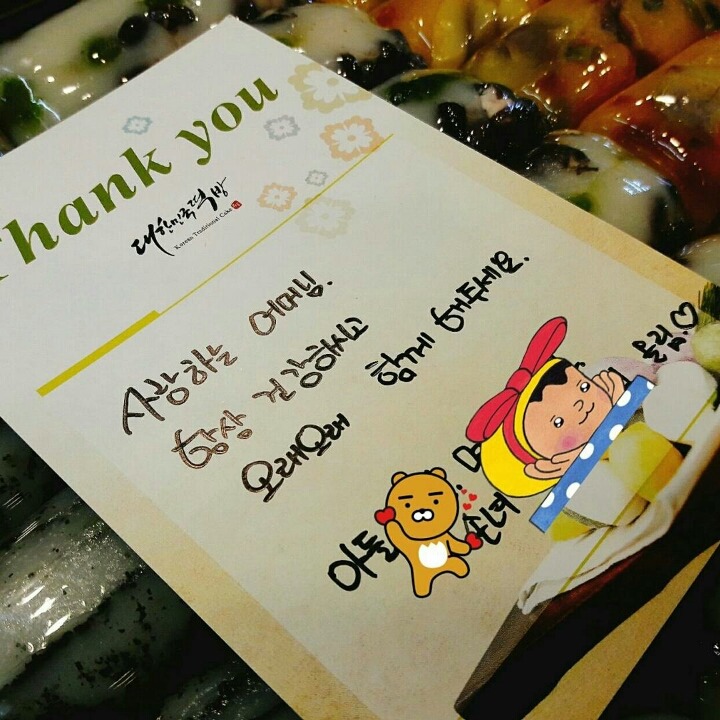 Thank you
대한민국떡방
Korean Traditional Cake
사랑하는 어머님.
항상 건강하시고
오래오래 함께 해주세요.
아들
손녀
올림.♡